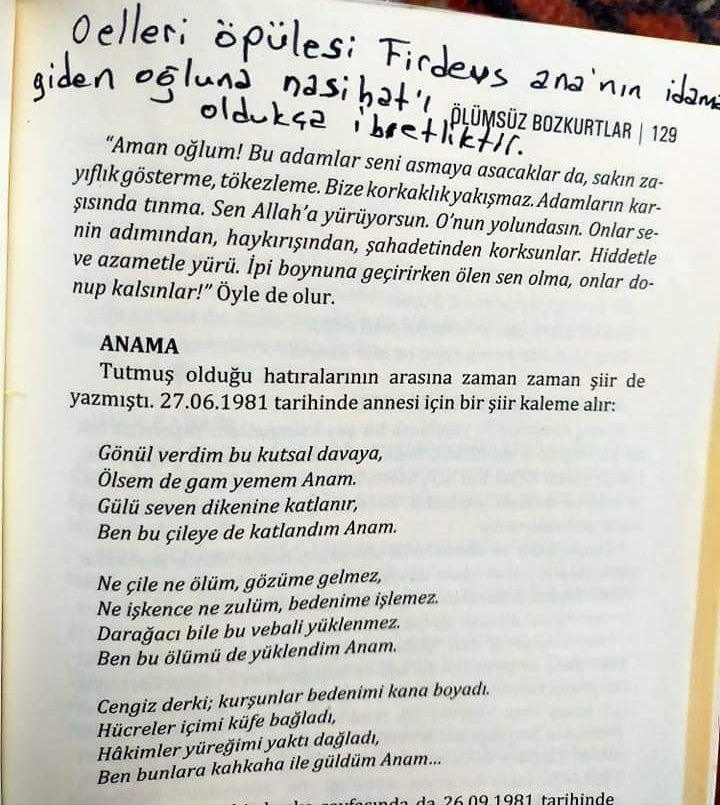 O elleri öpülesi Firdevs ana'nın idama
giden oğluna nasihat'ı
oldukça ibretliktir.
ÖLÜMSÜZ BOZKURTLAR | 129
"Aman oğlum! Bu adamlar seni asmaya asacaklar da, sakın za-
yıflık gösterme, tökezleme. Bize korkaklık yakışmaz. Adamların kar-
şısında tınma. Sen Allah'a yürüyorsun. O'nun yolundasın. Onlar se-
nin adımından, haykırışından, şahadetinden korksunlar. Hiddetle
ve azametle yürü. İpi boynuna geçirirken ölen sen olma, onlar do-
nup kalsınlar!" Öyle de olur.
ANAMA
Tutmuş olduğu hatıralarının arasına zaman zaman şiir de
yazmıştı. 27.06.1981 tarihinde annesi için bir şiir kaleme alır:
Gönül verdim bu kutsal davaya,
Ölsem de gam yemem Anam.
Gülü seven dikenine katlanır,
Ben bu çileye de katlandım Anam.
Ne çile ne ölüm, gözüme gelmez,
Ne işkence ne zulüm, bedenime işlemez.
Darağacı bile bu vebali yüklenmez.
Ben bu ölümü de yüklendim Anam.
Cengiz derki; kurşunlar bedenimi kana boyadı.
Hücreler içimi küfe bağladı,
Hâkimler yüreğimi yaktı dağladı,
Ben bunlara kahkaha ile güldüm Anam...
da 26.09.1981 tarihinde